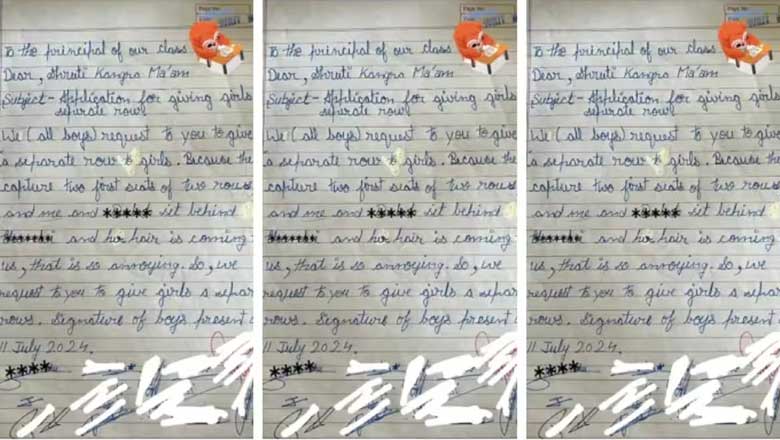 Page No.
To the principal of our class
Dear, Shruti Kangra Ma'am
Subject - Application for giving girls
seperate row
We (all boys) request to you to give
a separate row to girls. Because the
capture two first seats of two rows
and me and ***** sit behind
and her hair is coming
us, that is so annoying. So, we
request to you to give girls a separ
rows. Signature of boys present
11 July 2024.
****
Page No.
To the principal of our class
Dear, Shruti Kangra Ma'am
Subject - Application for giving girls
seperate row
We (all boys) request to you to give
a separate row to girls. Because the
capture two first seats of two rows
and me and ***** sit behind
and her hair is coming
us, that is so annoying. So, we
request to you to give girls a separ
rows. Signature of boys present
11 July 2024.
****
Page No.
To the principal of our class
Dear, Shruti Kangra Ma'am
Subject - Application for giving girls
seperate row
We (all boys) request to you to give
a separate row to girls. Because the
capture two first seats of two rows
and me and ***** sit behind
and her hair is coming
us, that is so annoying. So, we
request to you to give girls a separ
rows. Signature of boys present
11 July 2024.
****